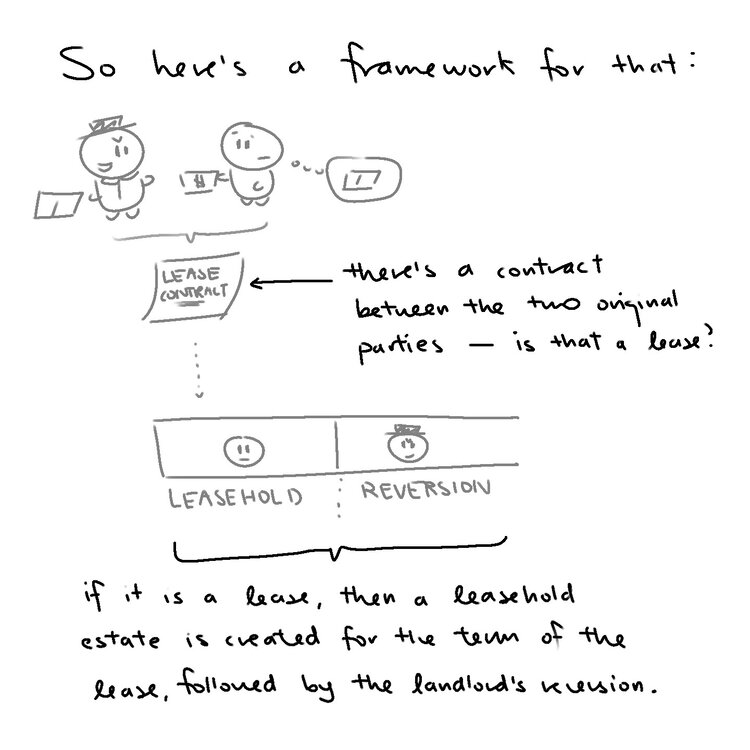 So here's a framework for that:
$
LEASE
CONTRACT
there's a contract
between the two original
parties — is that a lease?
LEASEHOLD
REVERSION
if it is a lease, then a leasehold
estate is created for the term of the
lease, followed by the landlord's reversion.